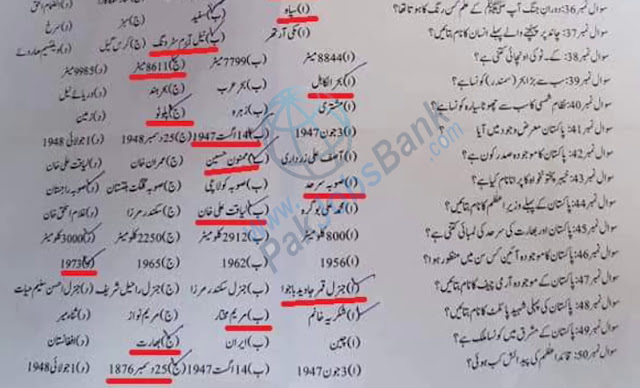 سوال نمبر36: دوران جنگ آپ ﷺ کے علم کس رنگ کا ہوتا تھا؟ (ا) سیاہ (ب) سفید (ج) سبز (د) سرخ
سوال نمبر37: چاند پر پہنچنے والے پہلے انسان کا نام بتائیں؟ (ا) مکی آرتھر (ب) نیل آرم سٹرانگ (ج) کرس گیل
سوال نمبر38: کے۔ ٹو کی اونچائی کتنی ہے؟ (ا) 8844 میٹر (ب) 7799 میٹر (ج) 8611 میٹر (د) 9985 میٹر
سوال نمبر39: سب سے بڑا بحر (سمندر) کونسا ہے؟ (ا) بحرالکاہل (ب) بحر عرب (ج) بحر ہند (د) دریائے نیل
سوال نمبر40: نظام شمسی کا سب سے چھوٹا سیارہ کونسا ہے؟ (ا) مشتری (ب) زہرہ (ج) پلوٹو (د) زمین
سوال نمبر41: پاکستان معرض وجود میں آیا ؟ (ا) 3 جون 1947 (ب) 14 اگست 1947 (ج) 25 دسمبر 1948 (د) 1 جولائی 1948
سوال نمبر42: پاکستان کا موجودہ صدر کون ہے؟ (ا) آصف علی زرداری (ب) ممنون حسین (ج) عمران خان (د) لیاقت علی خان
سوال نمبر43: خیبر پختونخواہ کا پرانا نام کیا ہے؟ (ا) صوبہ سرحد (ب) صوبہ کولاچی (ج) صوبہ گلگت بلتستان (د) صوبہ راجستان
سوال نمبر44: پاکستان کے پہلے وزیراعظم کا نام بتائیں؟ (ا) محمد علی بوگرہ (ب) لیاقت علی خان (ج) سکندر مرزا (د) غلام اسحق خان
سوال نمبر45: پاکستان اور بھارت کی سرحد کی لمبائی کتنی ہے؟ (ا) 800 کلومیٹر (ب) 2912 کلومیٹر (ج) 2250 کلومیٹر (د) 3000 کلومیٹر
سوال نمبر46: پاکستان کا موجودہ آئین کس سن میں منظور ہوا؟ (ا) 1956 (ب) 1962 (ج) 1965 (د) 1973
سوال نمبر47: پاکستان کے موجودہ آرمی چیف کا نام بتائیں؟ (ا) جنرل قمر جاوید باجوا (ب) جنرل سکندر مرزا (ج) جنرل راحیل شریف (د) جنرل احسن سلیم حیات
سوال نمبر48: پاکستان کی پہلی شہید پائلٹ کا نام بتائیں؟ (ا) شکریہ خانم (ب) مریم مختار (ج) مریم نواز (د) شمار میر
سوال نمبر49: پاکستان کے مشرق میں کونسا ملک ہے؟ (ا) چین (ب) ایران (ج) بھارت (د) افغانستان
سوال نمبر50: قائداعظم کی پیدائش کب ہوئی؟ (ا) 3 جون 1947 (ب) 14 اگست 1947 (ج) 25 دسمبر 1876 (د) 1 جولائی 1948